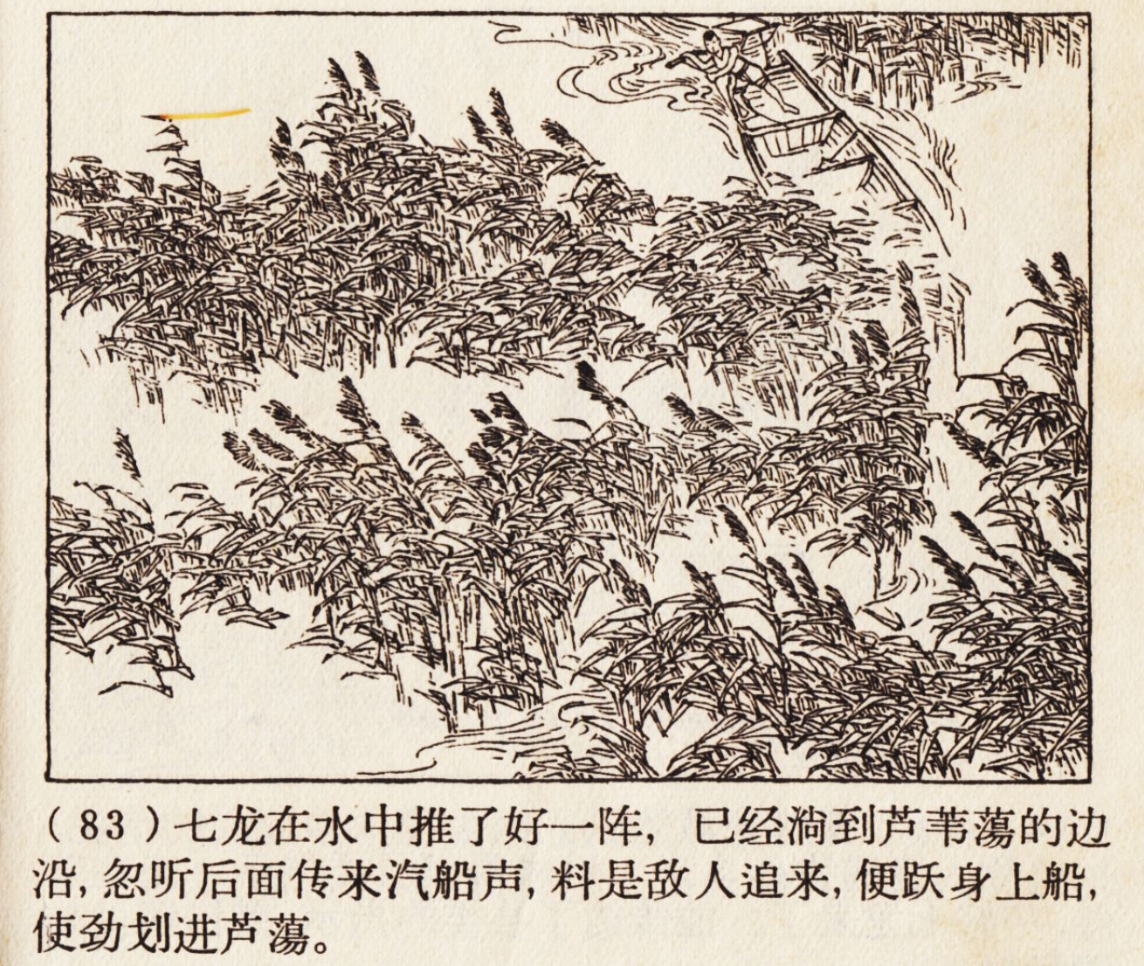 （83）七龙在水中推了好一阵，已经淌到芦苇蕩的边
沿，忽听后面传来汽船声，料是敌人追来，便跃身上船，
使劲划进芦蕩。